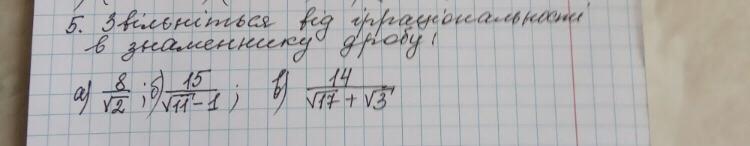 5. Звільніться від ірраціональності
в знаменнику дробу!
а) 8/√2 ; б) 15/(√11-1) ; в) 14/(√17 + √3)